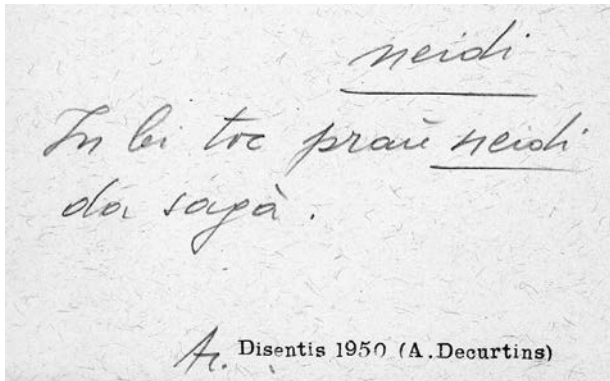 neidi
In bi toc prau neidi
da sagà.
Ar. Disentis 1950 (A.Decurtins)